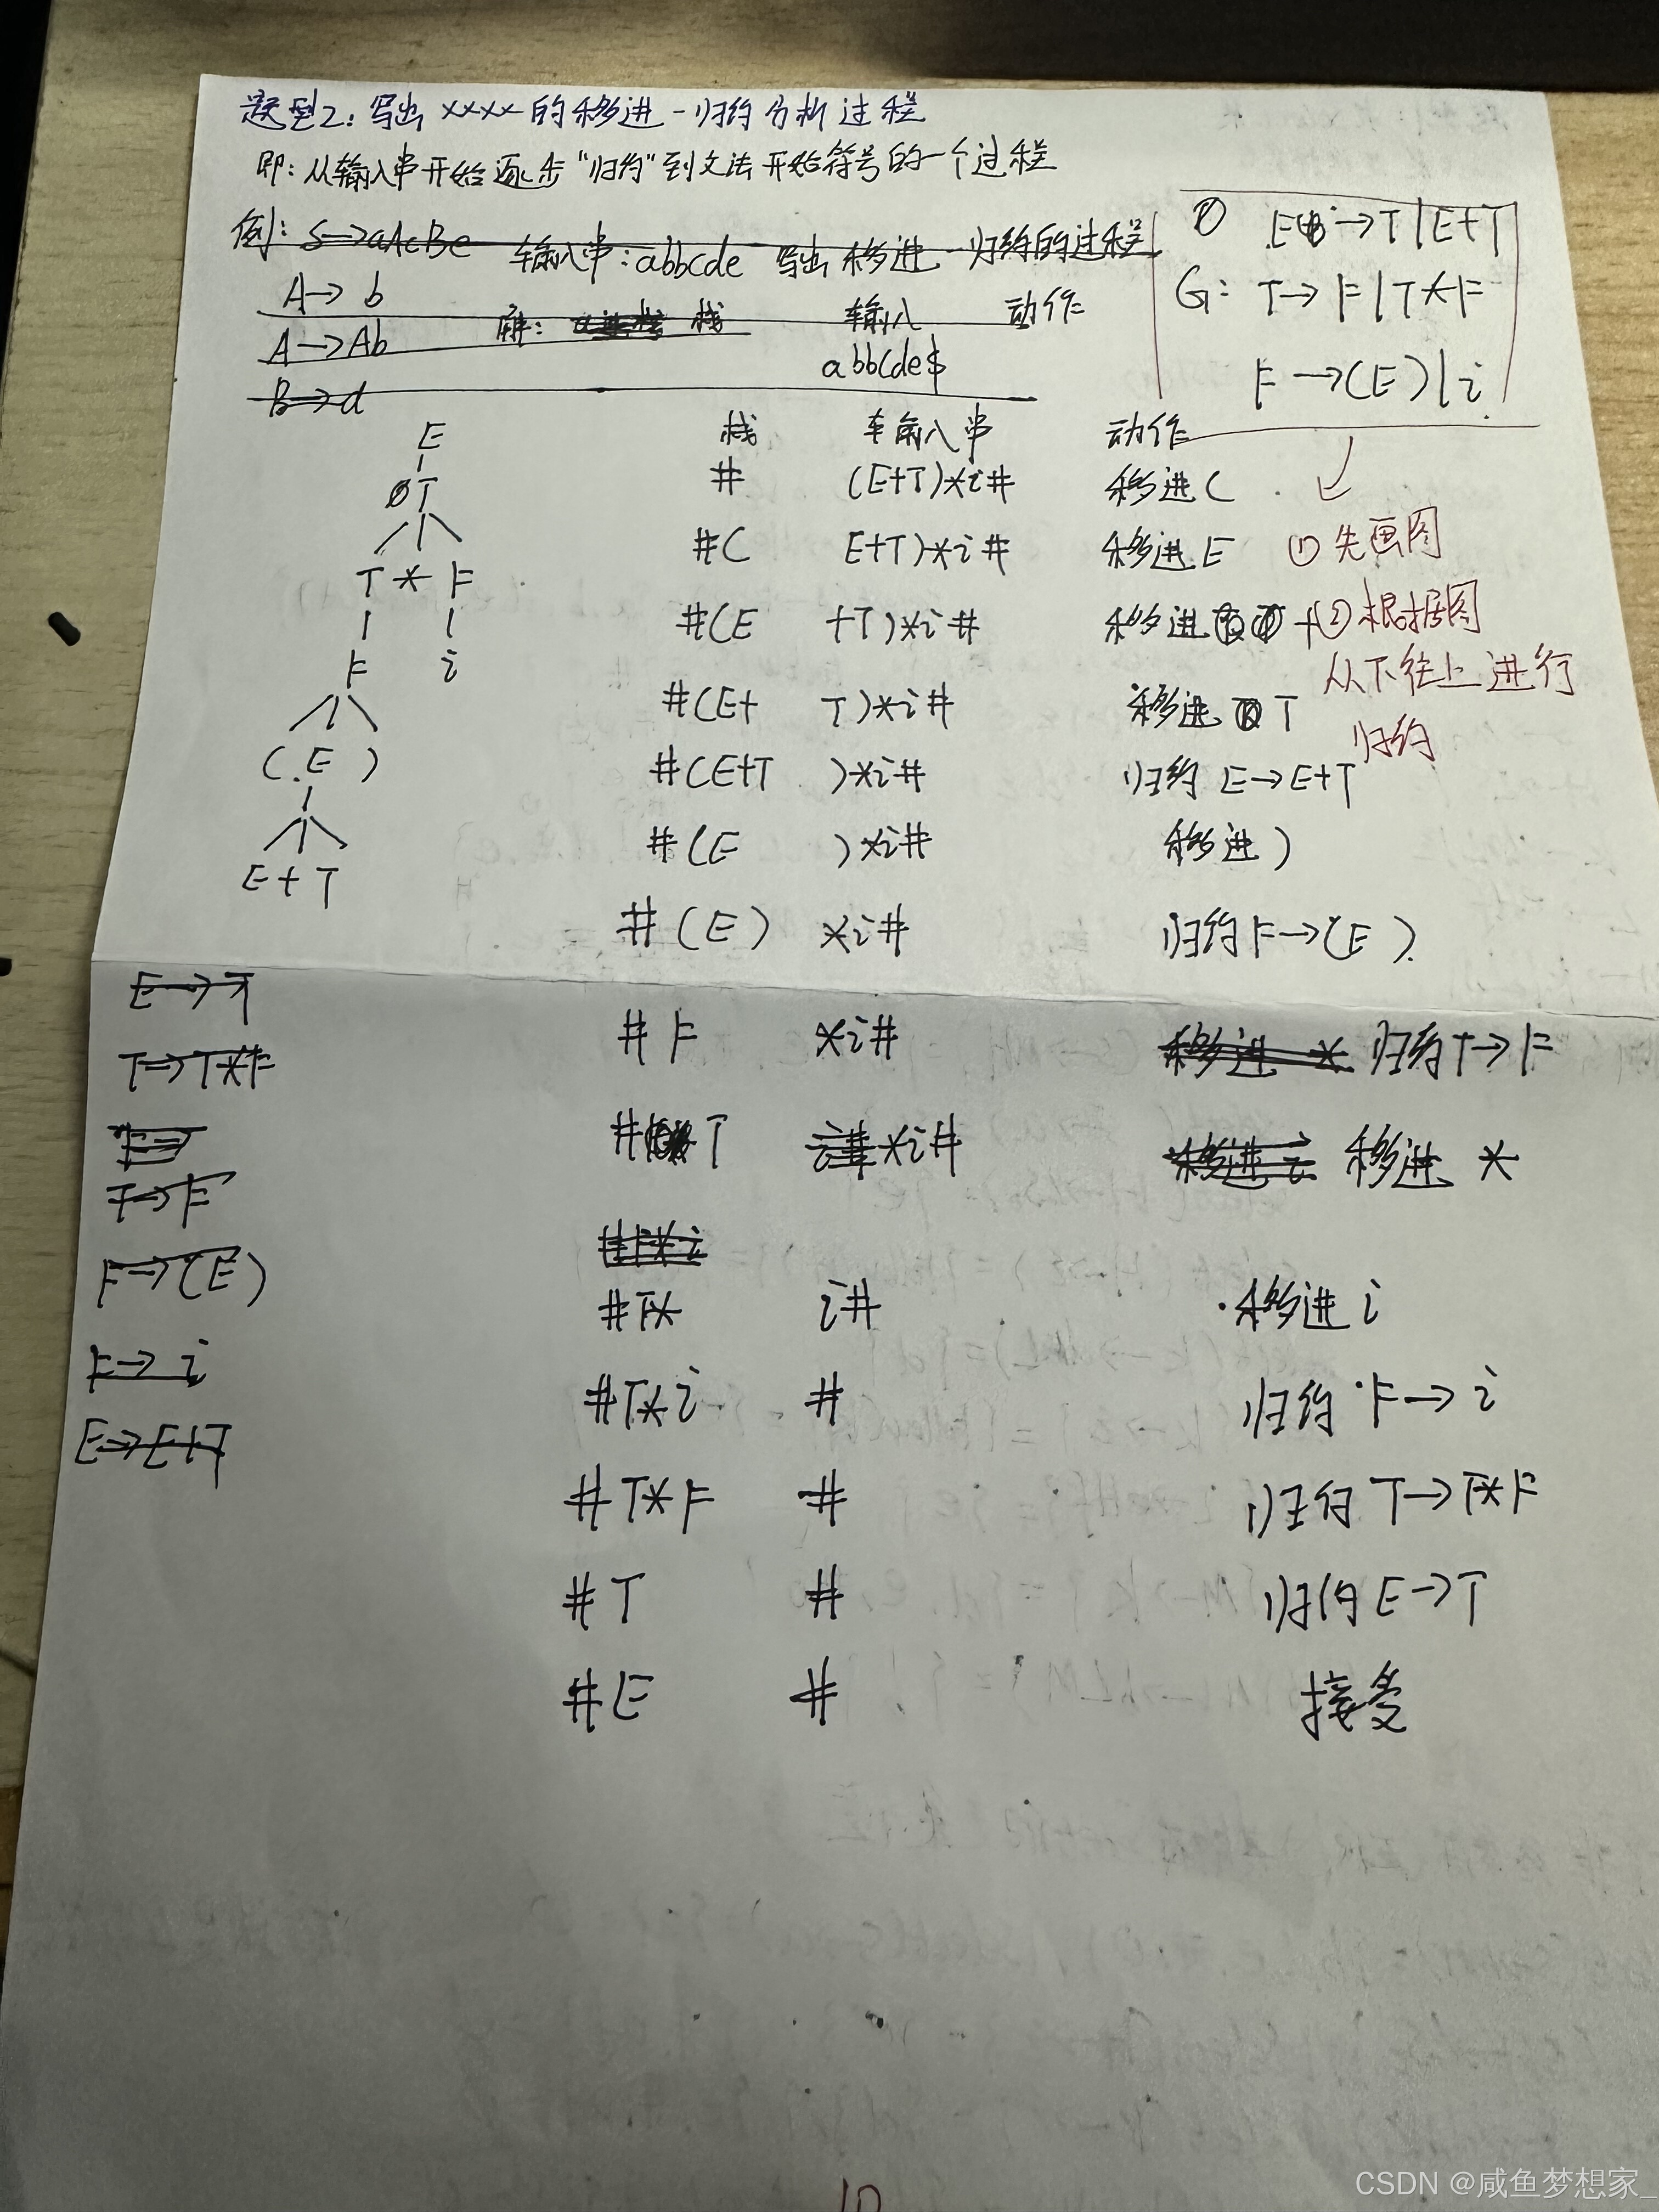 题型2：写出××××的移进-归约分析过程
即：从输入串开始逐步"归约"到文法开始符号的一个过程
例：S→aAcBe 输入串：abbcde 写出移进-归约的过程
A→b
A→Ab 解： 栈 输入 动作
abbcde$
B→d
① E→T|E+T
G: T→F|T*F
F→(E)|i
E
T
T * F
F i
( E )
E + T
栈 输入串 动作
# (E+T)*i# 移进(
#( E+T)*i# 移进E
#(E +T)*i# 移进 +
#(E+ T)*i# 移进 T
#(E+T )*i# 归约 E→E+T
#(E )*i# 移进)
#(E) *i# 归约F→(E)
#F *i# 移进 * 归约T→F
#T i# *i# 移进 i 移进 *
#F*i
#T* i# 移进i
#T*i # 归约 F→i
#T*F # 归约 T→T*F
#T # 归约E→T
#E # 接受
① 先画图
② 根据图
从下往上进行
归约
E→T
T→T*F
T→F
F→(E)
F→i
E→E+T
10
CSDN @咸鱼梦想家_